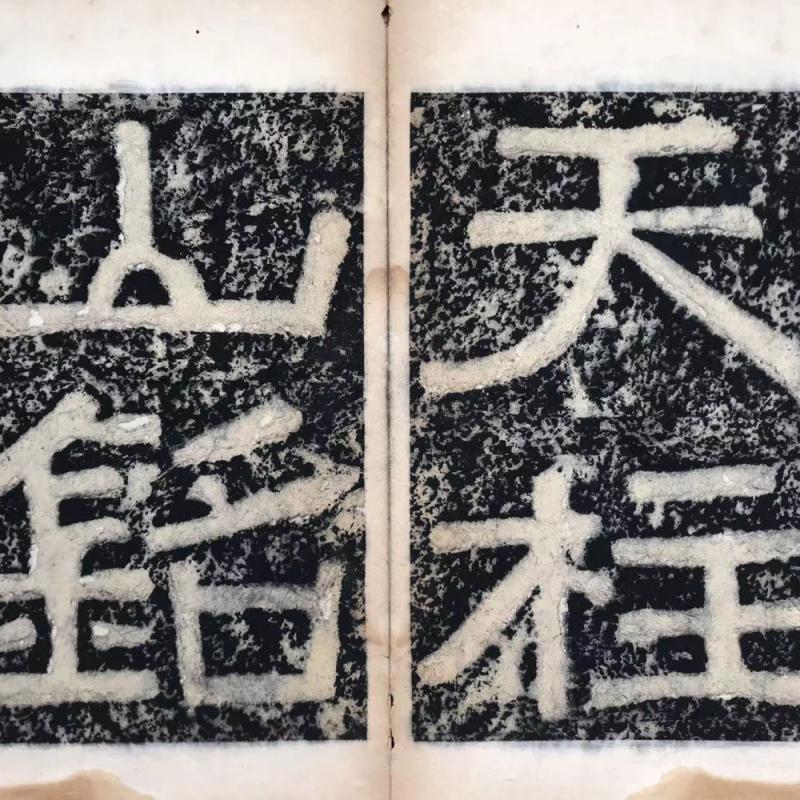 天柱
山銘